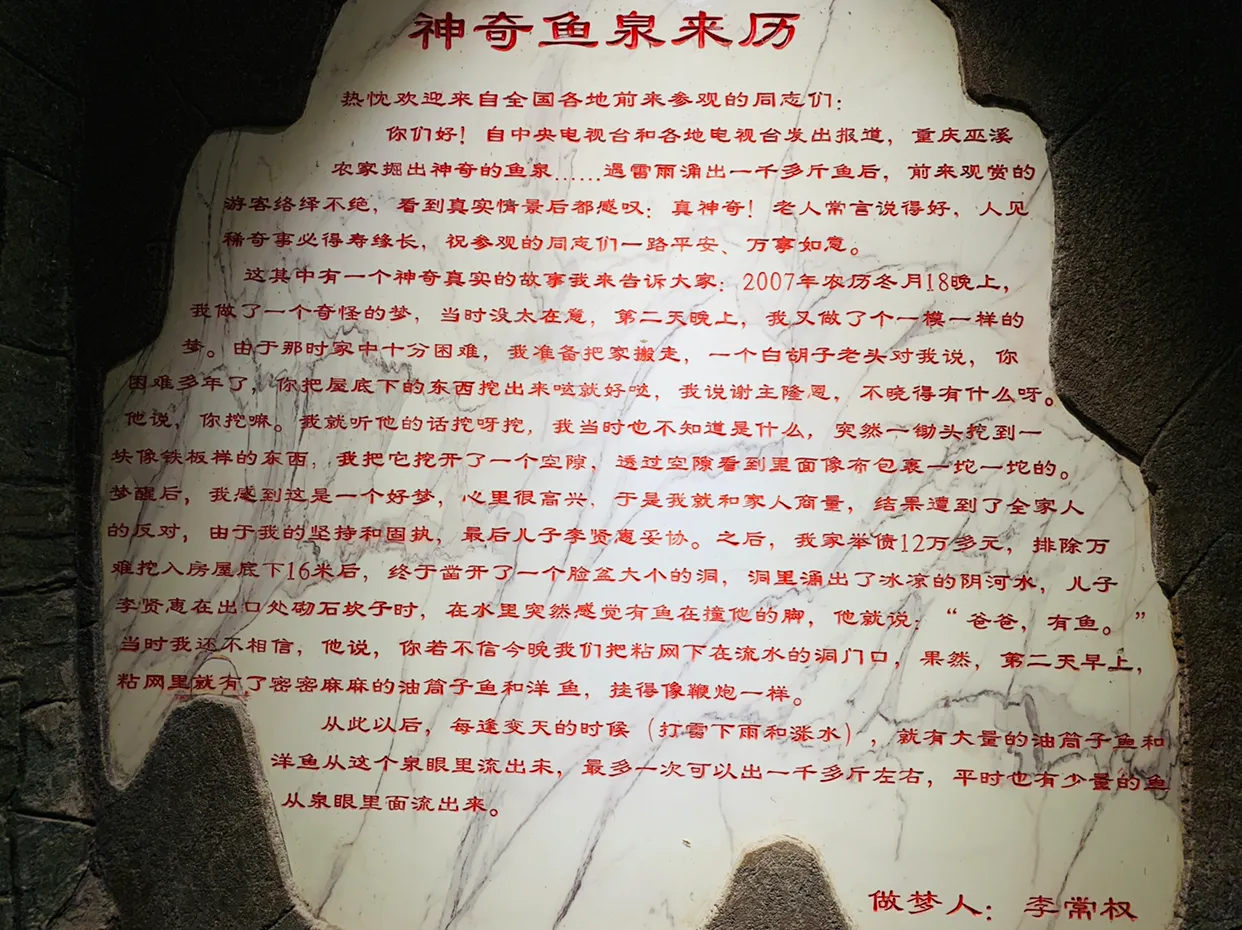 神奇鱼泉来历
热忱欢迎来自全国各地前来参观的同志们：
你们好！自中央电视台和各地电视台发出报道，重庆巫溪
农家掘出神奇的鱼泉……遇雷雨涌出一千多斤鱼后，前来观赏的
游客络绎不绝，看到真实情景后都感叹：真神奇！老人常言说得好，人见
稀奇事必得寿缘长，祝参观的同志们一路平安、万事如意。
这其中有一个神奇真实的故事我来告诉大家：2007年农历冬月18晚上，
我做了一个奇怪的梦，当时没太在意，第二天晚上，我又做了个一模一样的
梦。由于那时家中十分困难，我准备把家搬走，一个白胡子老头对我说，你
困难多年了，你把屋底下的东西挖出来哒就好哒，我说谢主隆恩，不晓得有什么呀。
他说，你挖嘛。我就听他的话挖呀挖，我当时也不知道是什么，突然一锄头挖到一
块像铁板样的东西，我把它挖开了一个空隙，透过空隙看到里面像布包裹一坨一坨的。
梦醒后，我感到这是一个好梦，心里很高兴，于是我就和家人商量，结果遭到了全家人
的反对，由于我的坚持和固执，最后儿子李贤惠妥协。之后，我家举债12万多元，排除万
难挖入房屋底下16米后，终于凿开了一个脸盆大小的洞，洞里涌出了冰凉的阴河水，儿子
李贤惠在出口处砌石坎子时，在水里突然感觉有鱼在撞他的脚，他就说：“爸爸，有鱼。”
当时我还不相信，他说，你若不信今晚我们把粘网下在流水的洞门口，果然，第二天早上，
粘网里就有了密密麻麻的油筒子鱼和洋鱼，挂得像鞭炮一样。
从此以后，每逢变天的时候（打雷下雨和涨水），就有大量的油筒子鱼和
洋鱼从这个泉眼里流出来，最多一次可以出一千多斤左右，平时也有少量的鱼
从泉眼里面流出来。
做梦人：李常权